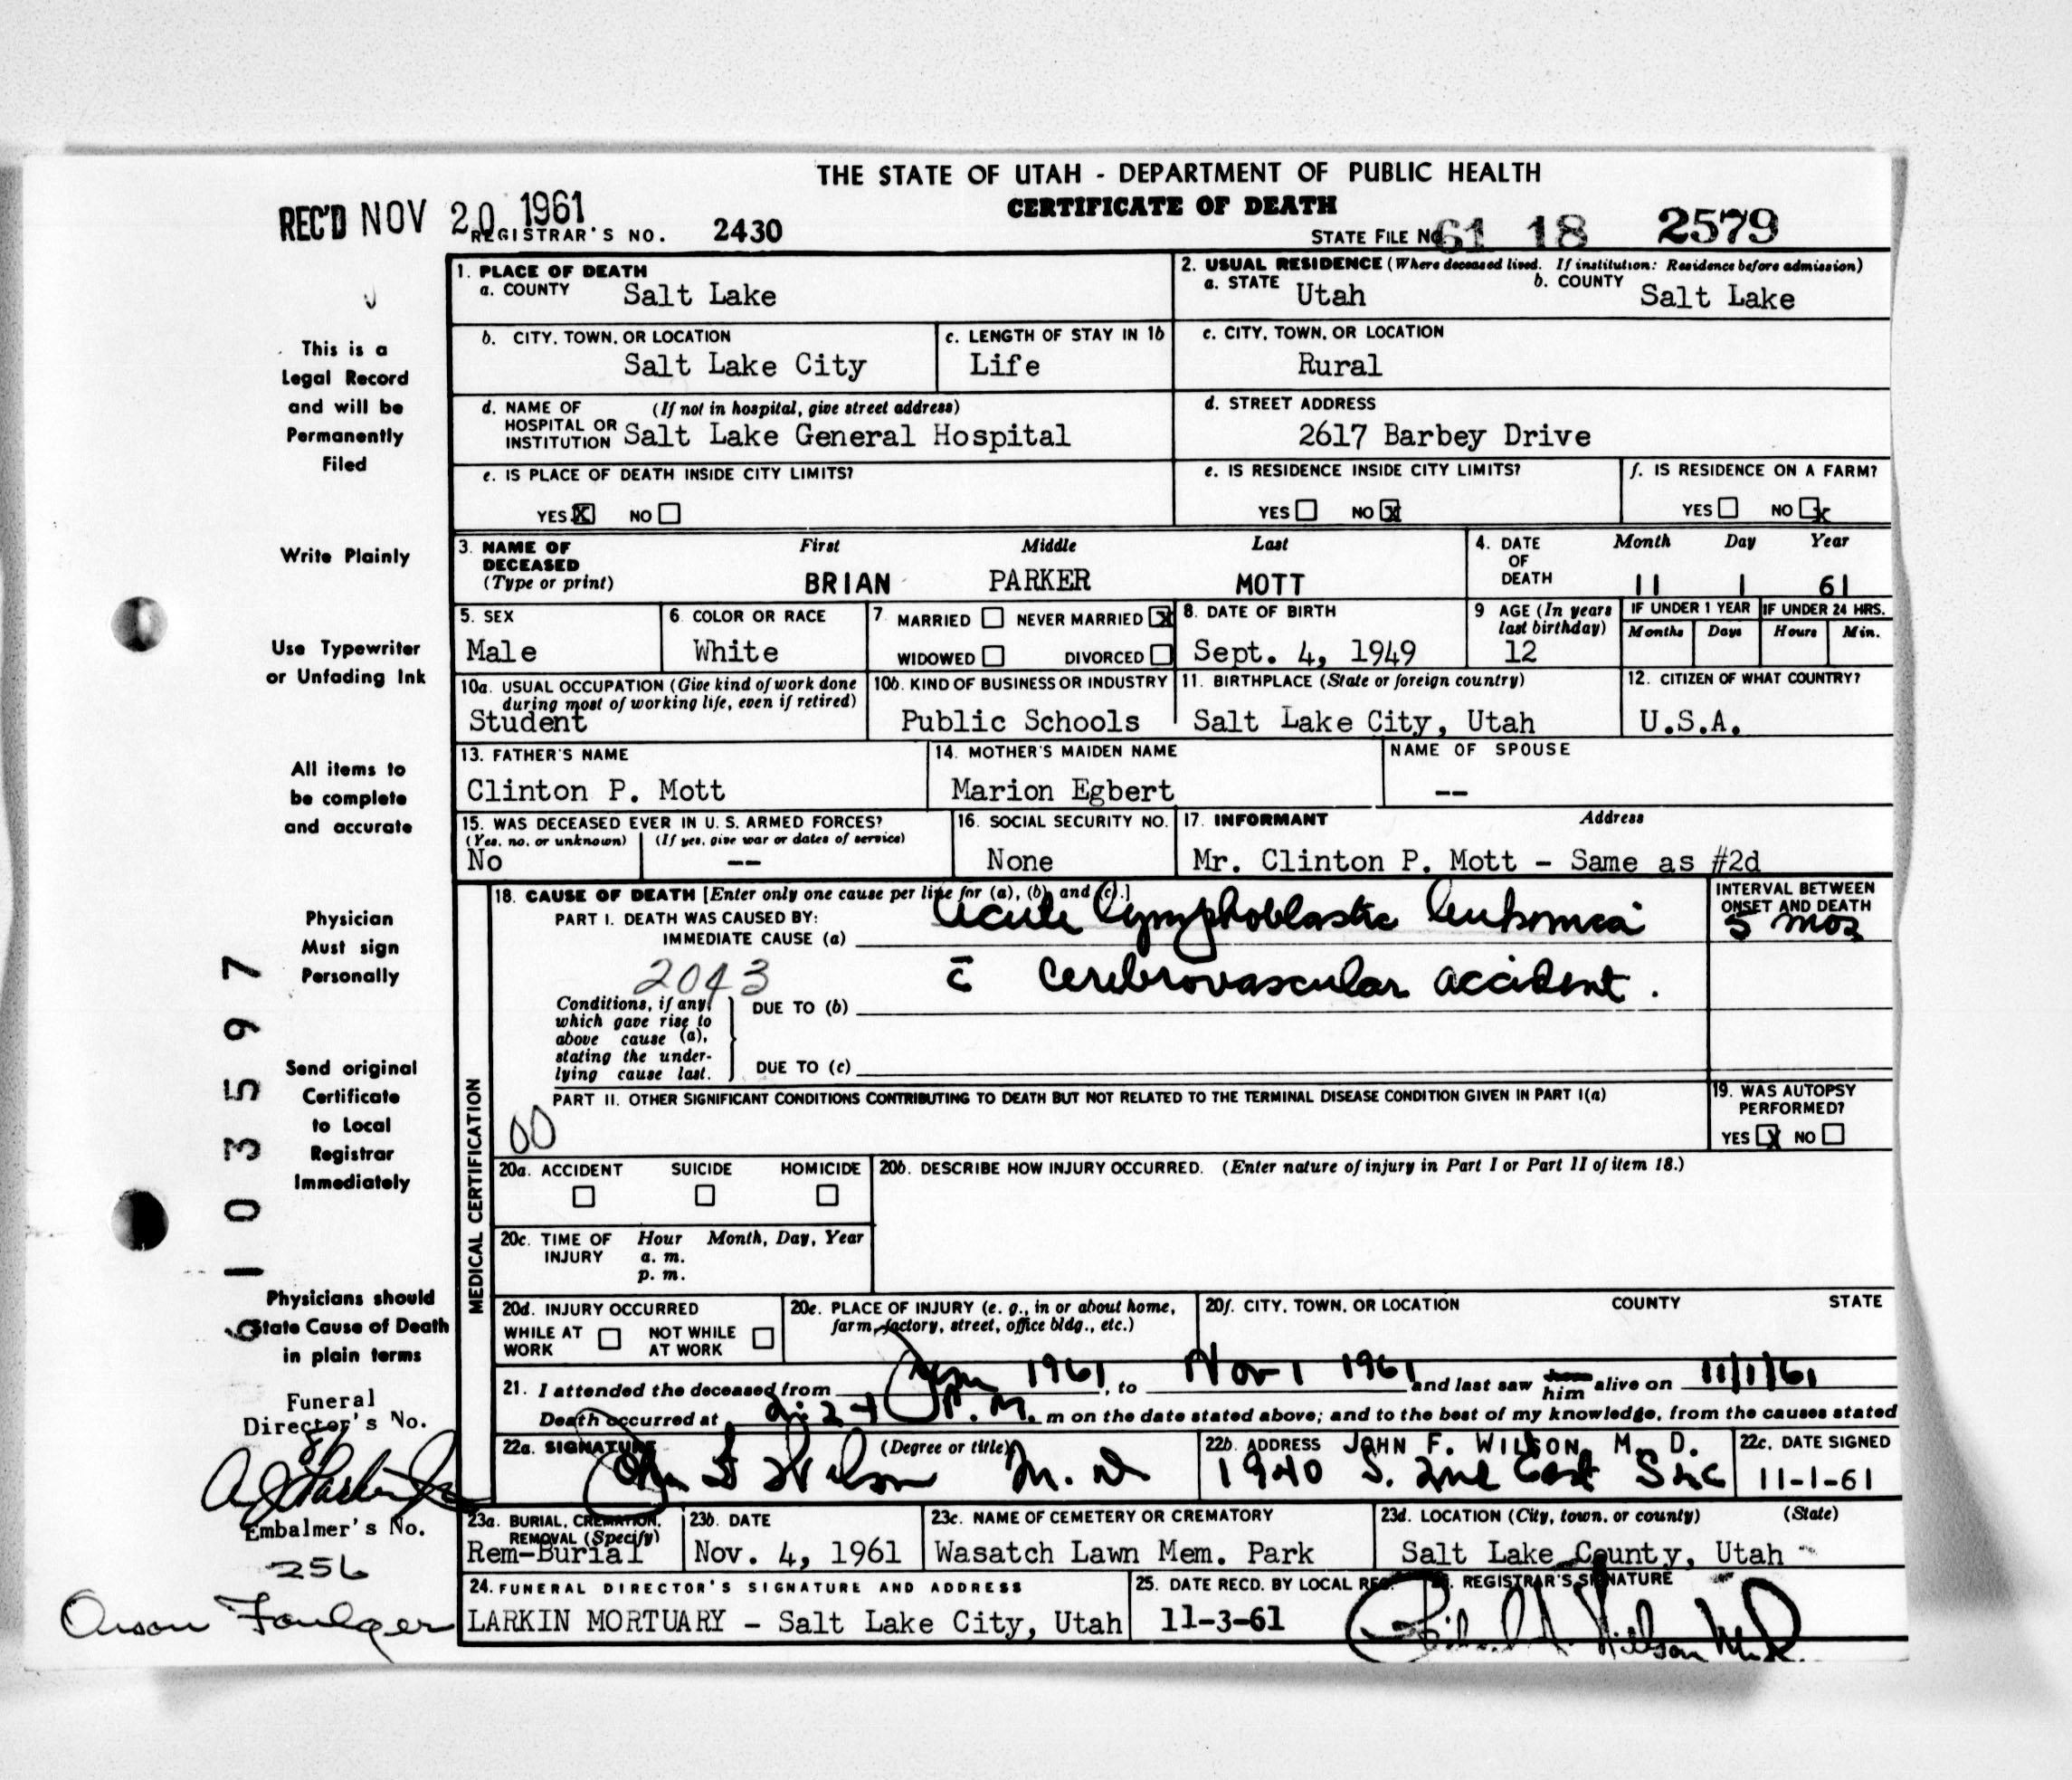 THE STATE OF UTAH - DEPARTMENT OF PUBLIC HEALTH
CERTIFICATE OF DEATH
REC'D NOV 20 1961
REGISTRAR'S NO. 2430
STATE FILE NO. 61 18 2579
1. PLACE OF DEATH
a. COUNTY Salt Lake
2. USUAL RESIDENCE (Where deceased lived. If institution: Residence before admission)
a. STATE Utah b. COUNTY Salt Lake
b. CITY, TOWN, OR LOCATION
Salt Lake City
c. LENGTH OF STAY IN 1b
Life
c. CITY, TOWN, OR LOCATION
Rural
d. NAME OF HOSPITAL OR INSTITUTION (If not in hospital, give street address)
Salt Lake General Hospital
d. STREET ADDRESS
2617 Barbey Drive
e. IS PLACE OF DEATH INSIDE CITY LIMITS?
YES X NO
e. IS RESIDENCE INSIDE CITY LIMITS?
YES NO X
f. IS RESIDENCE ON A FARM?
YES NO X
3. NAME OF DECEASED (Type or print)
First Middle Last
BRIAN PARKER MOTT
4. DATE OF DEATH
Month Day Year
11 1 61
5. SEX
Male
6. COLOR OR RACE
White
7. MARRIED NEVER MARRIED X
WIDOWED DIVORCED
8. DATE OF BIRTH
Sept. 4, 1949
9 AGE (In years last birthday)
12
IF UNDER 1 YEAR
Months Days
IF UNDER 24 HRS.
Hours Min.
10a. USUAL OCCUPATION (Give kind of work done during most of working life, even if retired)
Student
10b. KIND OF BUSINESS OR INDUSTRY
Public Schools
11. BIRTHPLACE (State or foreign country)
Salt Lake City, Utah
12. CITIZEN OF WHAT COUNTRY?
U.S.A.
13. FATHER'S NAME
Clinton P. Mott
14. MOTHER'S MAIDEN NAME
Marion Egbert
NAME OF SPOUSE
--
15. WAS DECEASED EVER IN U.S. ARMED FORCES?
(Yes, no, or unknown) (If yes, give war or dates of service)
No --
16. SOCIAL SECURITY NO.
None
17. INFORMANT Address
Mr. Clinton P. Mott - Same as #2d
MEDICAL CERTIFICATION
18. CAUSE OF DEATH [Enter only one cause per line for (a), (b), and (c).]
PART I. DEATH WAS CAUSED BY:
IMMEDIATE CAUSE (a) Acute lymphoblastic leukemia
INTERVAL BETWEEN ONSET AND DEATH
5 mos
2043
c̄ cerebrovascular accident.
Conditions, if any, which gave rise to above cause (a), stating the underlying cause last.
DUE TO (b)
DUE TO (c)
PART II. OTHER SIGNIFICANT CONDITIONS CONTRIBUTING TO DEATH BUT NOT RELATED TO THE TERMINAL DISEASE CONDITION GIVEN IN PART I(a)
00
19. WAS AUTOPSY PERFORMED?
YES X NO
20a. ACCIDENT SUICIDE HOMICIDE
20b. DESCRIBE HOW INJURY OCCURRED. (Enter nature of injury in Part I or Part II of item 18.)
20c. TIME OF INJURY Hour Month, Day, Year
a. m.
p. m.
20d. INJURY OCCURRED
WHILE AT WORK NOT WHILE AT WORK
20e. PLACE OF INJURY (e. g., in or about home, farm, factory, street, office bldg., etc.)
20f. CITY, TOWN, OR LOCATION COUNTY STATE
21. I attended the deceased from 1961, to Nov 1 1961 and last saw him alive on 11/1/61
Death occurred at P.M. m on the date stated above; and to the best of my knowledge, from the causes stated
22a. SIGNATURE (Degree or title)
John F Wilson M.D.
22b. ADDRESS JOHN F. WILSON, M. D.
1940 S. 2nd East SLC
22c. DATE SIGNED
11-1-61
23a. BURIAL, CREMATION, REMOVAL (Specify)
Rem-Burial
23b. DATE
Nov. 4, 1961
23c. NAME OF CEMETERY OR CREMATORY
Wasatch Lawn Mem. Park
23d. LOCATION (City, town, or county) (State)
Salt Lake County, Utah
24. FUNERAL DIRECTOR'S SIGNATURE AND ADDRESS
LARKIN MORTUARY - Salt Lake City, Utah
25. DATE RECD. BY LOCAL REG.
11-3-61
26. REGISTRAR'S SIGNATURE
This is a
Legal Record
and will be
Permanently
Filed
Write Plainly
Use Typewriter
or Unfading Ink
All items to
be complete
and accurate
Physician
Must sign
Personally
Send original
Certificate
to Local
Registrar
Immediately
Physicians should
State Cause of Death
in plain terms
Funeral
Director's No.
Embalmer's No.
256
Orson Foulger
103597